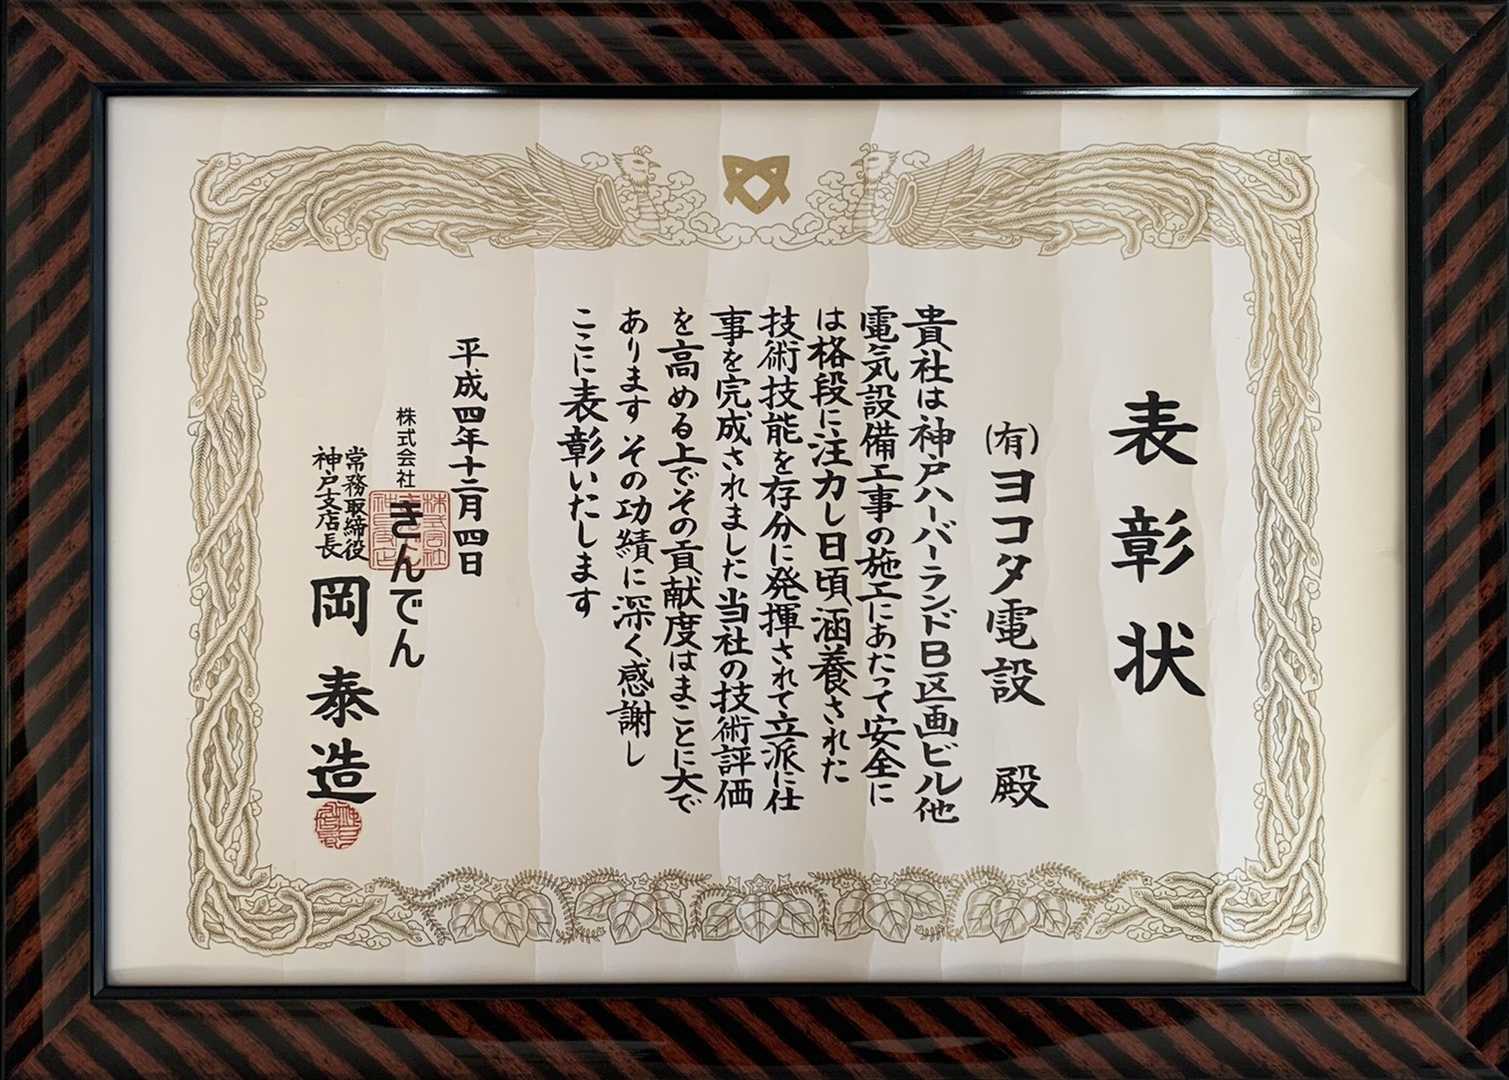 表彰状
(有)ヨコタ電設 殿
貴社は神戸ハーバーランドB区画ビル他
電気設備工事の施工にあたって安全に
は格段に注力し日頃涵養された
技術技能を存分に発揮されて立派に仕
事を完成されました当社の技術評価
を高める上でその貢献度はまことに大で
あります その功績に深く感謝し
ここに表彰いたします
平成四年十二月四日
株式会社 きんでん
常務取締役
神戸支店長
岡泰造